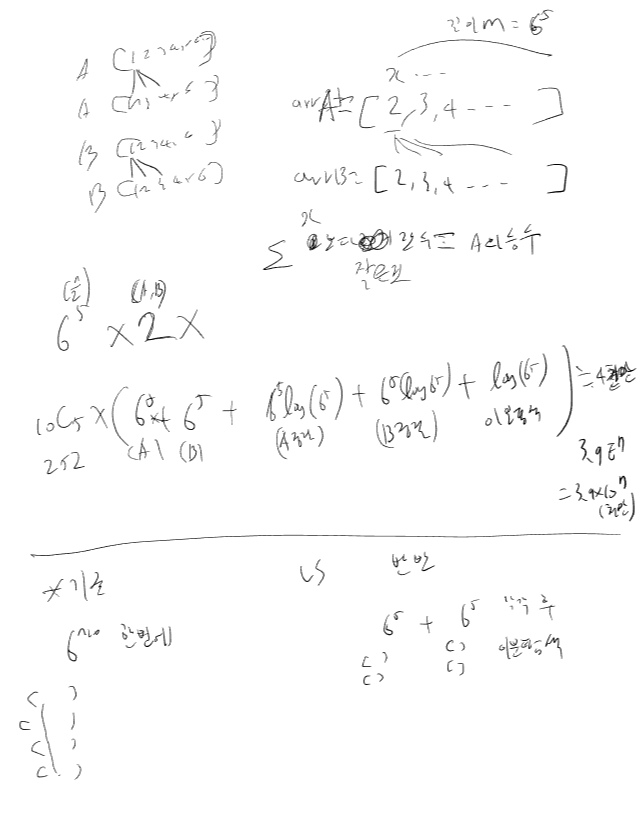 길이 m = 6^5
A [1 2 3 4 5 6]
x ...
A [1 2 3 4 5 6]
arrA = [2, 3, 4 ...]
B [1 2 3 4 5 6]
arrB = [2, 3, 4 ...]
B [1 2 3 4 5 6]
x
Σ 보다 작은 갯수 = A의 승수
(n/2) (A, B)
6^5 × 2 ×
10C5 × (6^5 + 6^5 + 6^5 log(6^5) + 6^5 (log 6^5) + log(6^5)) ≒ 4천만
252 (A) (B) (A정렬) (B정렬) 이분탐색
3.9E7
= 3.9×10^7
(천만)
*기존 VS 반반
6^n=10 한번에 6^5 + 6^5 각각 후
이분탐색